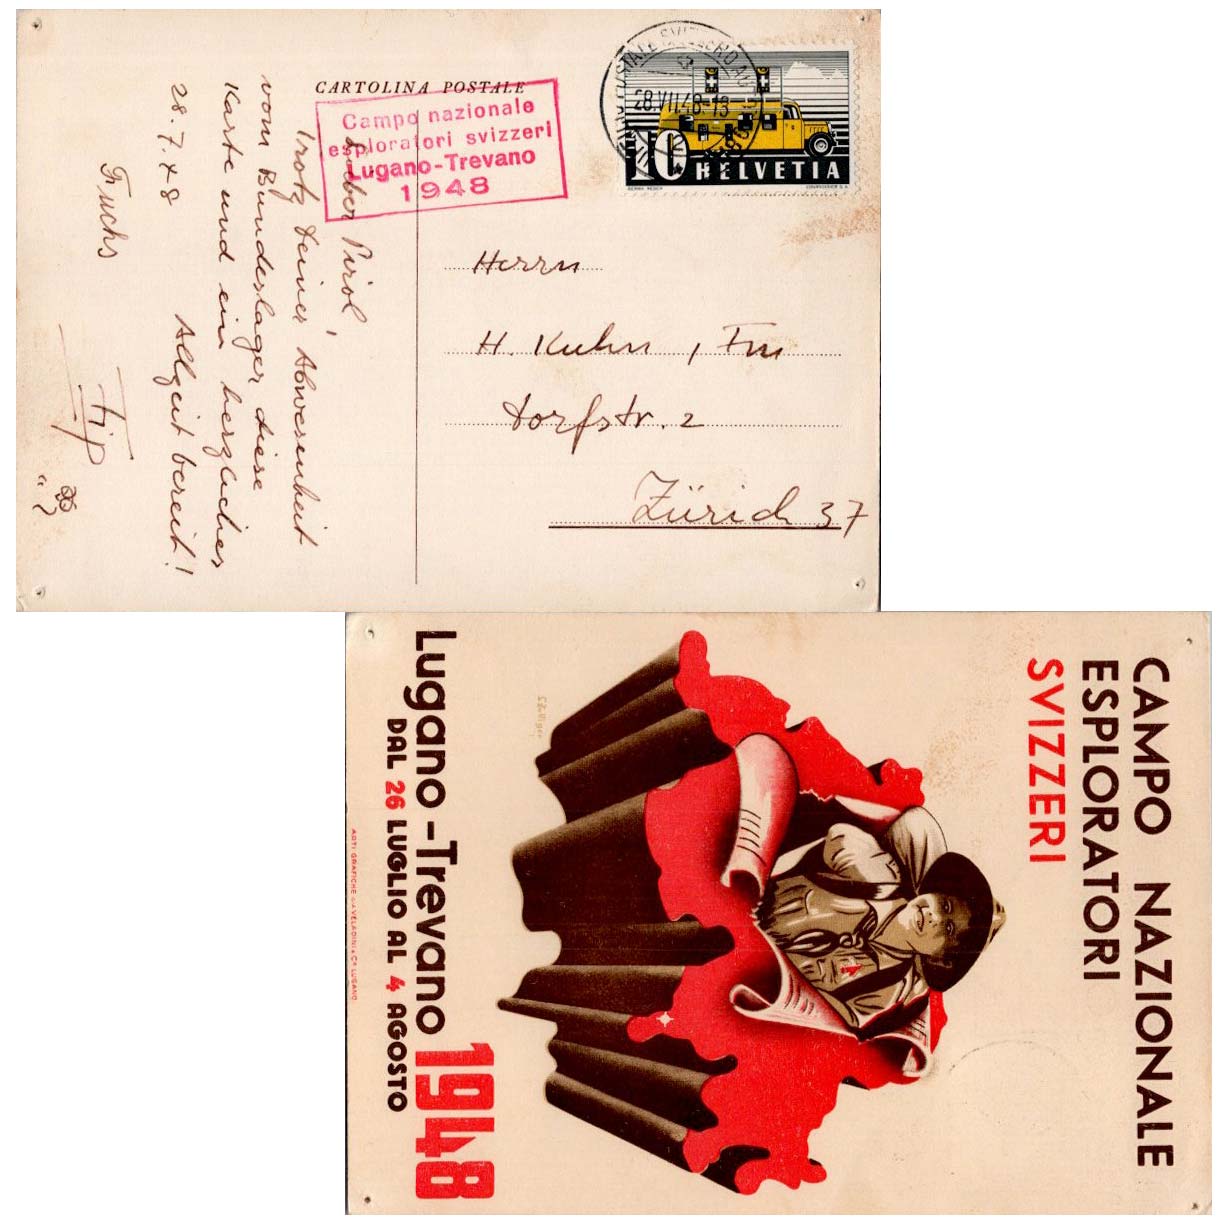 CARTOLINA POSTALE
Campo nazionale
esploratori svizzeri
Lugano-Trevano
1948
28.VII.48-13
10
HELVETIA
COURVOISIER S.A.
Lieber Pirol,
Trotz Deiner Abwesenheit
vom Bundeslager diese
Karte und ein herzliches
Allzeit bereit!
28.7.48
Fuchs
Fip
Herrn
H. Kuhn, Fm
Dorfstr. 2
Zürich 37
CAMPO NAZIONALE
ESPLORATORI
SVIZZERI
Lugano-Trevano 1948
DAL 26 LUGLIO AL 4 AGOSTO
ARTI GRAFICHE GIÀ VELADINI & Co LUGANO